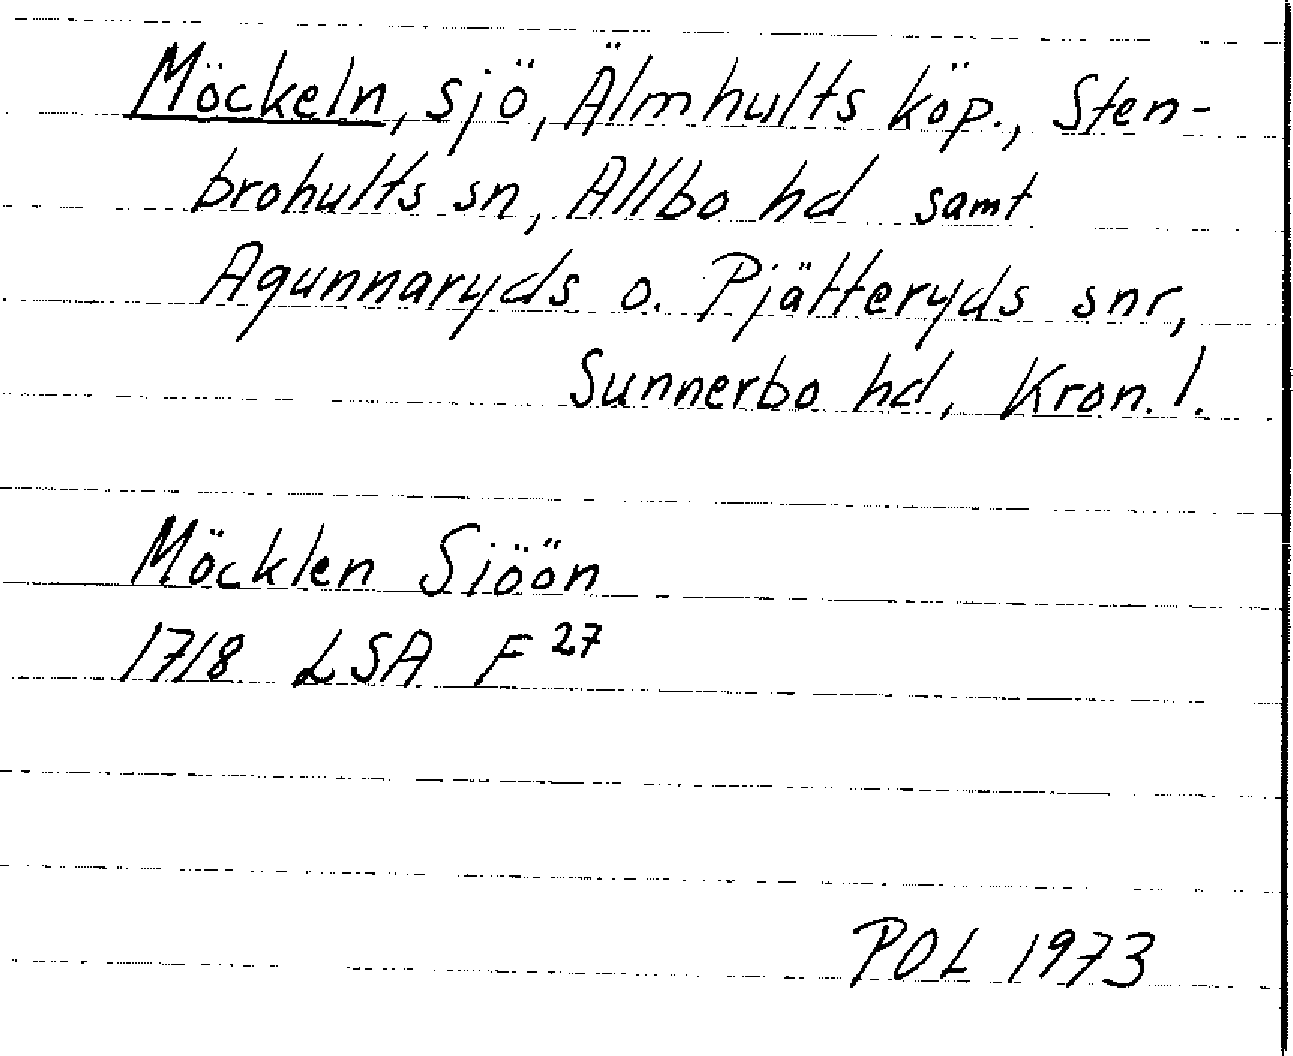 Möckeln, sjö, Älmhults köp., Sten-
brohults sn, Allbo hd samt
Agunnaryds o. Pjätteryds snr,
Sunnerbo hd, Kron. l.
Möcklen Siöön
1718 LSA F 27
POL 1973